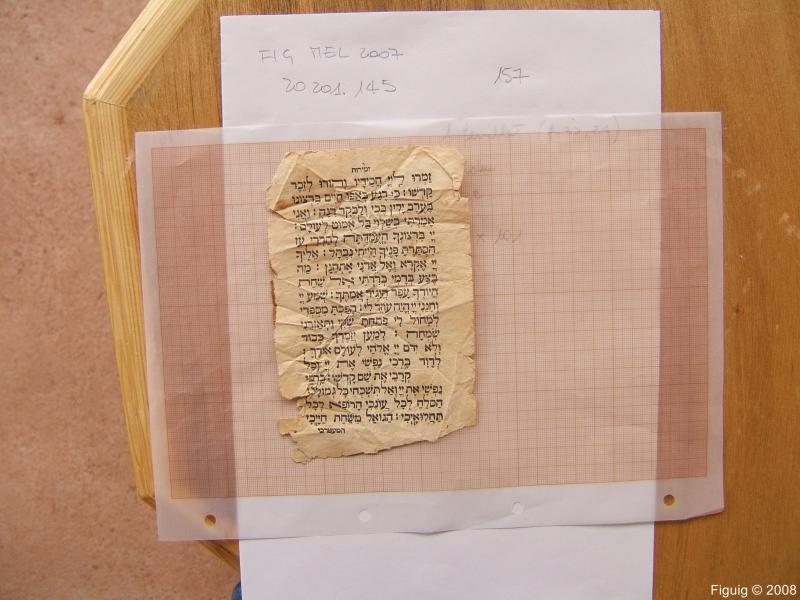 FIG MEL 2007
20 201. 145
157
זמירות
זַמְּרוּ לַייָ חֲסִידָיו וְהוֹדוּ לְזֵכֶר
קָדְשׁוֹ: כִּי רֶגַע בְּאַפּוֹ חַיִּים בִּרְצוֹנוֹ
בָּעֶרֶב יָלִין בֶּכִי וְלַבֹּקֶר רִנָּה: וַאֲנִי
אָמַרְתִּי בְשַׁלְוִי בַּל אֶמּוֹט לְעוֹלָם:
יְיָ בִּרְצוֹנְךָ הֶעֱמַדְתָּה לְהַרְרִי עֹז
הִסְתַּרְתָּ פָנֶיךָ הָיִיתִי נִבְהָל: אֵלֶיךָ
יְיָ אֶקְרָא וְאֶל אֲדֹנָי אֶתְחַנָּן: מַה
בֶּצַע בְּדָמִי בְּרִדְתִּי אֶל שָׁחַת
הֲיוֹדְךָ עָפָר הֲיַגִּיד אֲמִתֶּךָ: שְׁמַע יְיָ
וְחָנֵּנִי יְיָ הֱיֵה עוֹזֵר לִי: הָפַכְתָּ מִסְפְּדִי
לְמָחוֹל לִי פִּתַּחְתָּ שַׂקִּי וַתְּאַזְּרֵנִי
שִׂמְחָה: לְמַעַן יְזַמֶּרְךָ כָבוֹד
וְלֹא יִדֹּם יְיָ אֱלֹהַי לְעוֹלָם אוֹדֶךָּ:
לְדָוִד בָּרְכִי נַפְשִׁי אֶת יְיָ וְכָל
קְרָבַי אֶת שֵׁם קָדְשׁוֹ: בָּרְכִי
נַפְשִׁי אֶת יְיָ וְאַל תִּשְׁכְּחִי כָּל גְּמוּלָיו:
הַסֹּלֵחַ לְכָל עֲוֹנֵכִי הָרוֹפֵא לְכָל
תַּחֲלוּאָיְכִי: הַגּוֹאֵל מִשַּׁחַת חַיָּיְכִי
המעטרכי
Figuig © 2008